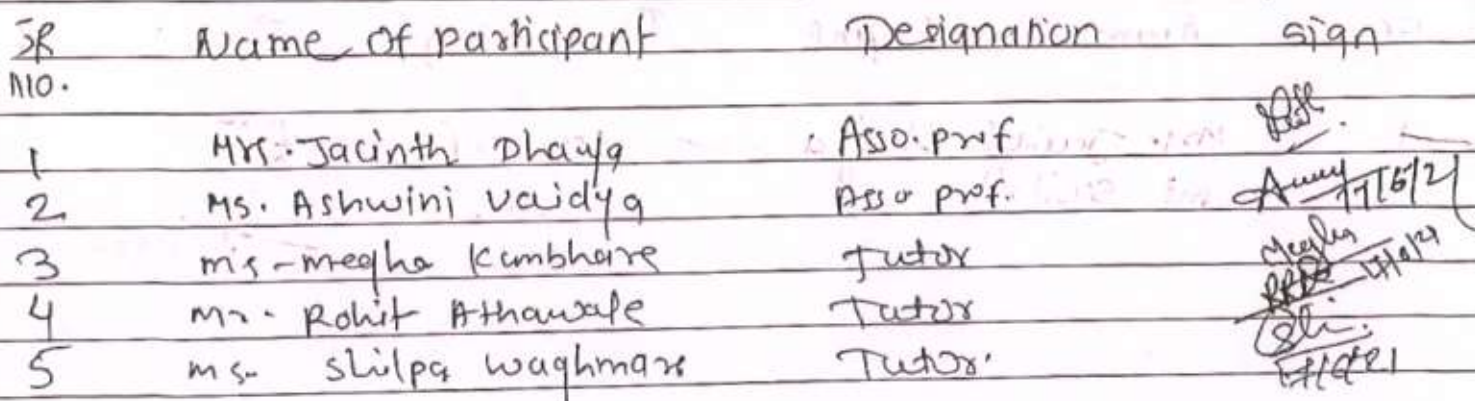 SR Name of participant Designation sign
NO.
1 Mrs. Jacinth Dhaya Asso. prof
2 Ms. Ashwini Vaidya Asso prof.
3 ms-megha Kambhare Tutor Megha
4 Mr. Rohit Athawale Tutor
5 ms- Shilpa Waghmare Tutor.